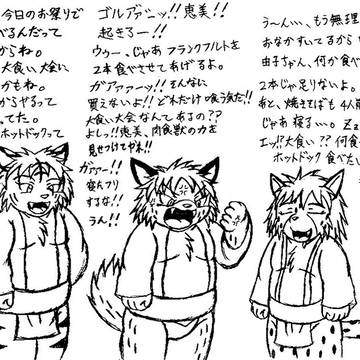 今日のお祭りで
べるんだって
からね。
大食い大会に
かもね。
からやるって
ってた。
ホットドックって
ゴルアァーッ!!恵美!!
起きろー!!
ウゥー、じゃあフランクフルトを
2本食べさせてあげるよ。
ガアァァーッ!!そんなに
買えないよ!!どれだけ喰う気だ!!
大食い大会なんてあるの??
よしっ!!恵美、肉食獣の力を
見せつけてやれ!!
ガァー!!
寝たフリ
するな!!
うん!!
う〜ん…、もう無理
おなかすいてるから
由子ちゃん、何か食べ
2本じゃ足りないよ。
あと、焼きそばも4人前
じゃあ寝る…。Zz
エッ!?大食い??何食
ホットドック食べた